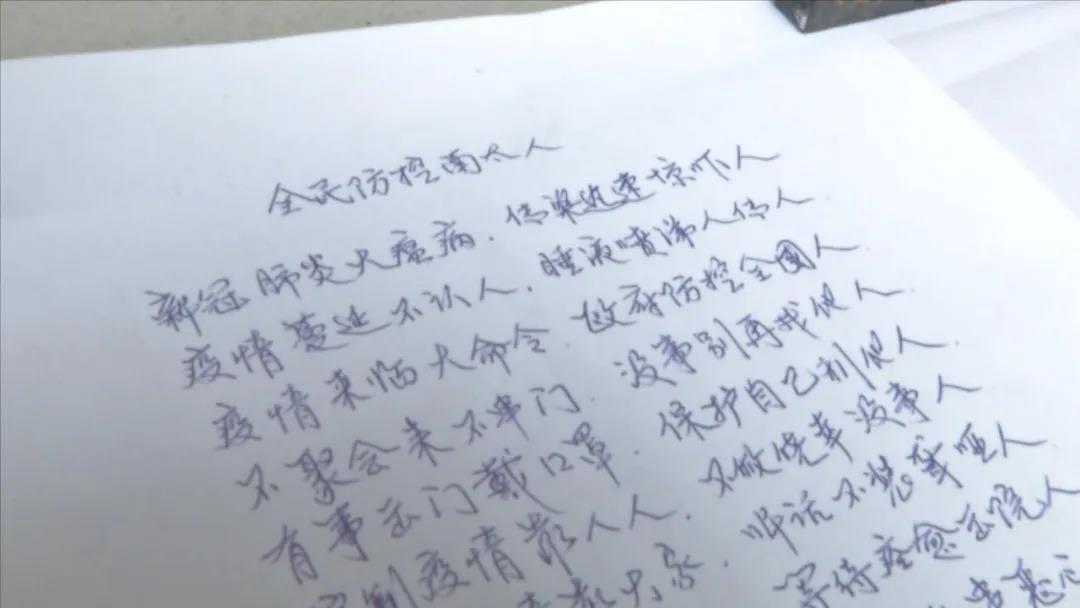 全民防控南太人
新冠肺炎大瘟病.传染迅速惊吓人
疫情蔓延不认人.唾液喷涕人传人
疫情来临大命令.政府防控全國人
不聚会来不串门.没事别再找他人
有事出门戴口罩.保护自己利他人
制疫情靠人人.不做侥幸没事人
大家.听话不装聋哑人
等待痊愈出院人